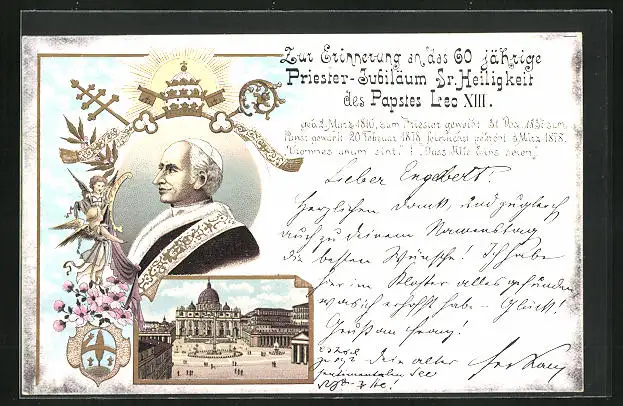 Zur Erinnerung an das 60 jährige
Priester-Jubiläum Sr. Heiligkeit
des Papstes Leo XIII.
geb. 2. März 1810, zum Priester geweiht 31. Dez. 1837, zum
Papst gewählt 20. Februar 1878, feierlichst gekrönt 3. März 1878.
unum sint." ! "Dass Alle Eins seien"
Lieber Engelbert!
Herzlichen Dank, und zugleich
auch zu deinem Namenstag
die besten Wünsche! Ich habe
hier im Kloster alles gefunden
was ich erhofft habe - Glück!
Gruß an Franz!
Dein alter